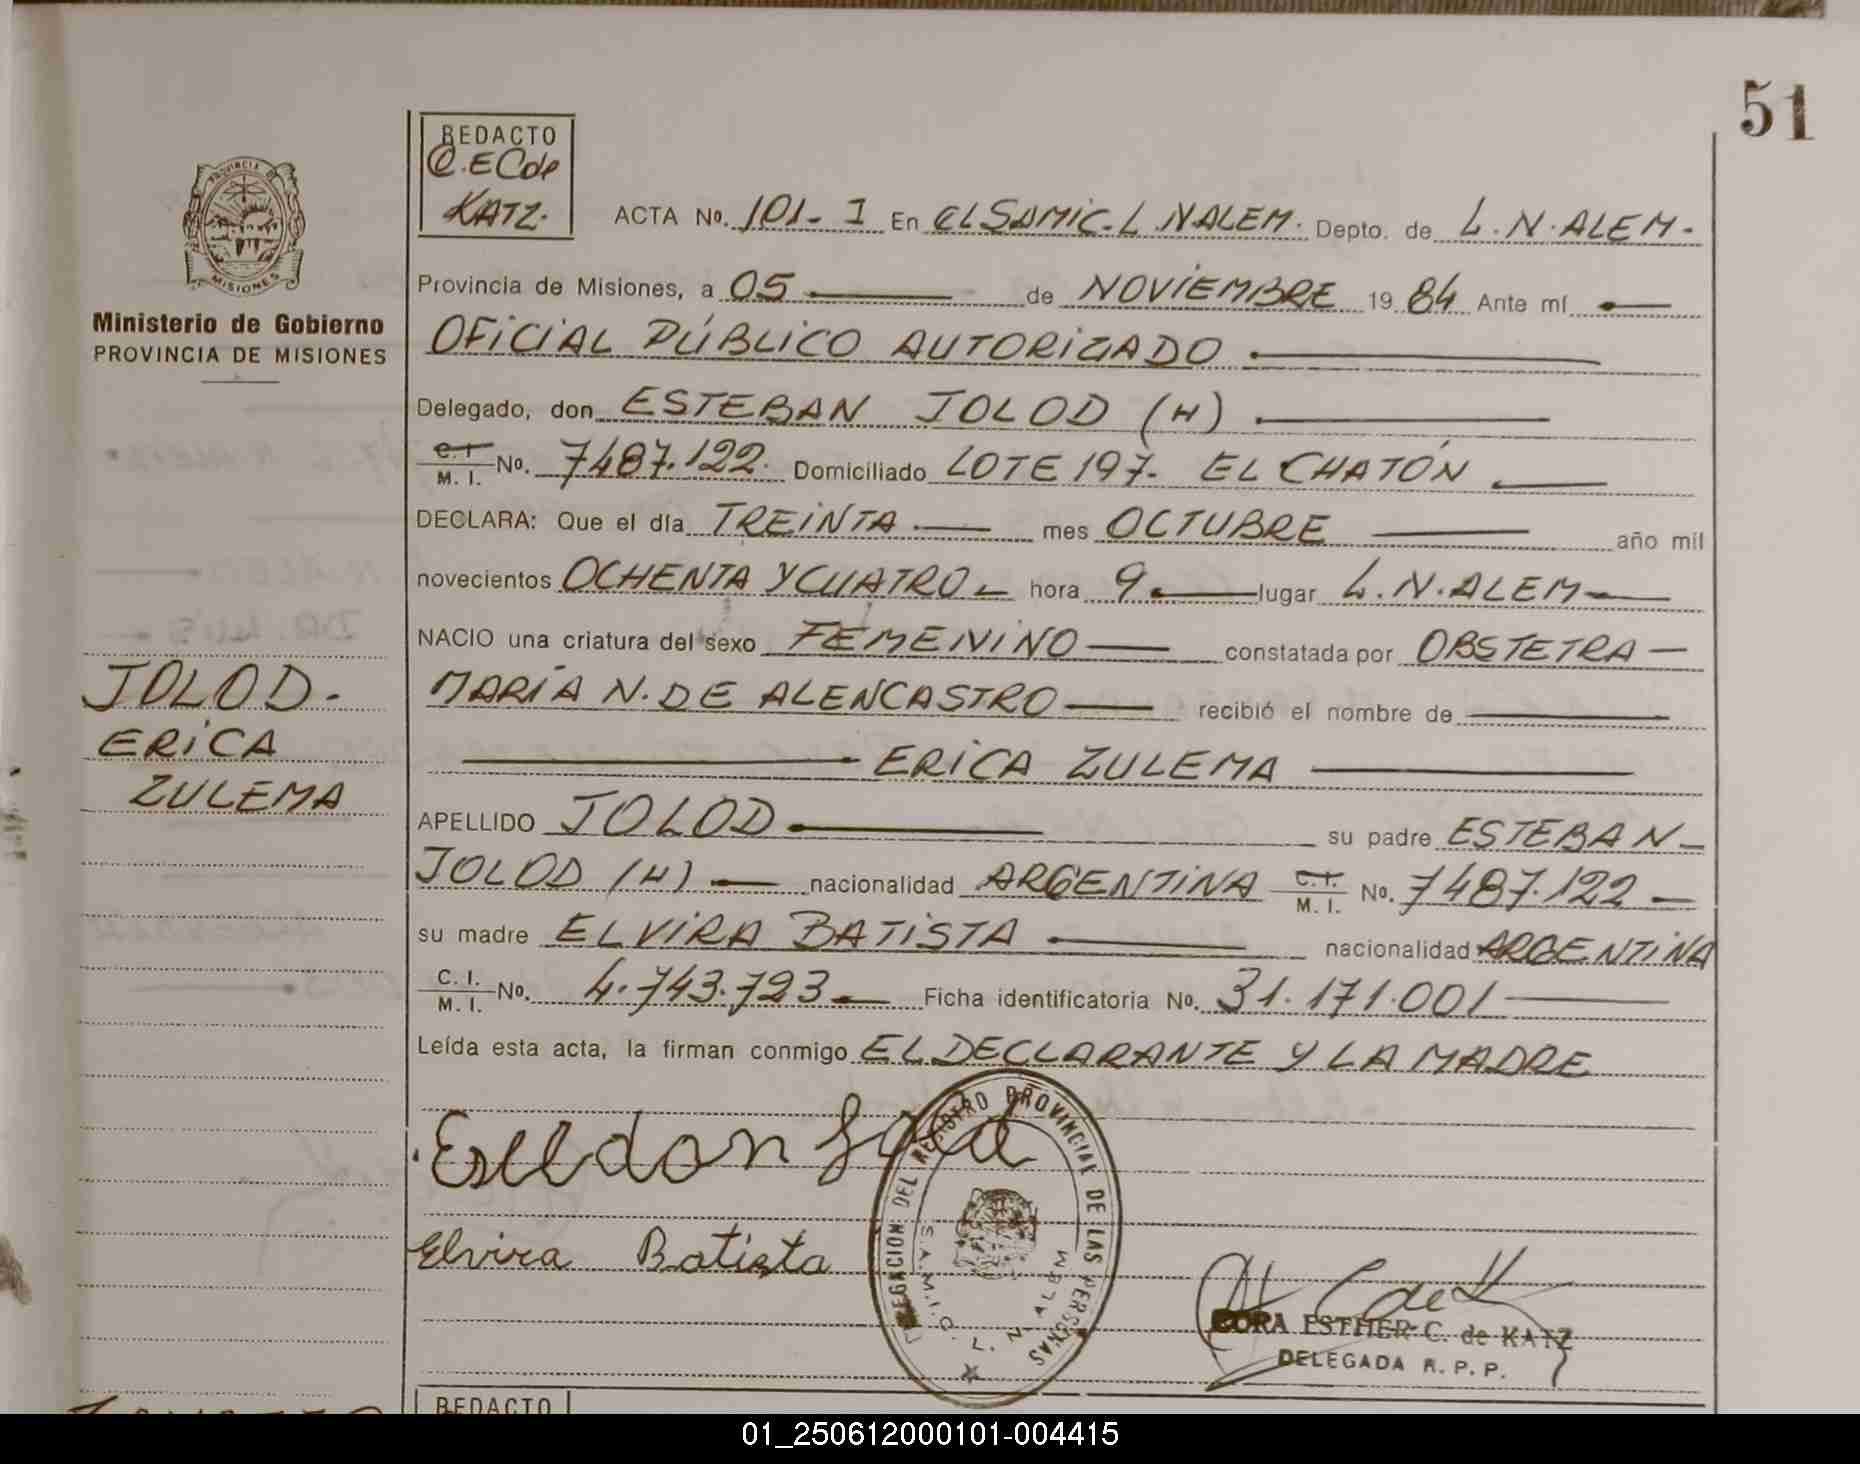 51
REDACTO
C.E C de
KATZ.
PROVINCIA DE
MISIONES
Ministerio de Gobierno
PROVINCIA DE MISIONES
ACTA No. 101-I En EL SAMIC. L. N ALEM. Depto. de L. N. ALEM.
Provincia de Misiones, a 05 de NOVIEMBRE 19 84 Ante mí
OFICIAL PÚBLICO AUTORIZADO
Delegado, don ESTEBAN JOLOD (H)
C. I. M. I. No. 7487.122. Domiciliado LOTE 197. EL CHATÓN
DECLARA: Que el día TREINTA mes OCTUBRE año mil
novecientos OCHENTA Y CUATRO hora 9 lugar L. N. ALEM
NACIO una criatura del sexo FEMENINO constatada por OBSTETRA
MARÍA N. DE ALENCASTRO recibió el nombre de
ERICA ZULEMA
JOLOD.
ERICA
ZULEMA
APELLIDO JOLOD su padre ESTEBAN
JOLOD (H) nacionalidad ARGENTINA C. I. M. I. No. 7487.122
su madre ELVIRA BATISTA nacionalidad ARGENTINA
C. I. M. I. No. 4.743.723 Ficha identificatoria No. 31.171.001
Leída esta acta, la firman conmigo EL DECLARANTE Y LA MADRE
Elvira Batista
DELEGACION DEL REGISTRO PROVINCIAL DE LAS PERSONAS
S.A.M.I.C. L. N. ALEM
CORA ESTHER C. de KATZ
DELEGADA R. P. P.
REDACTO
01_250612000101-004415